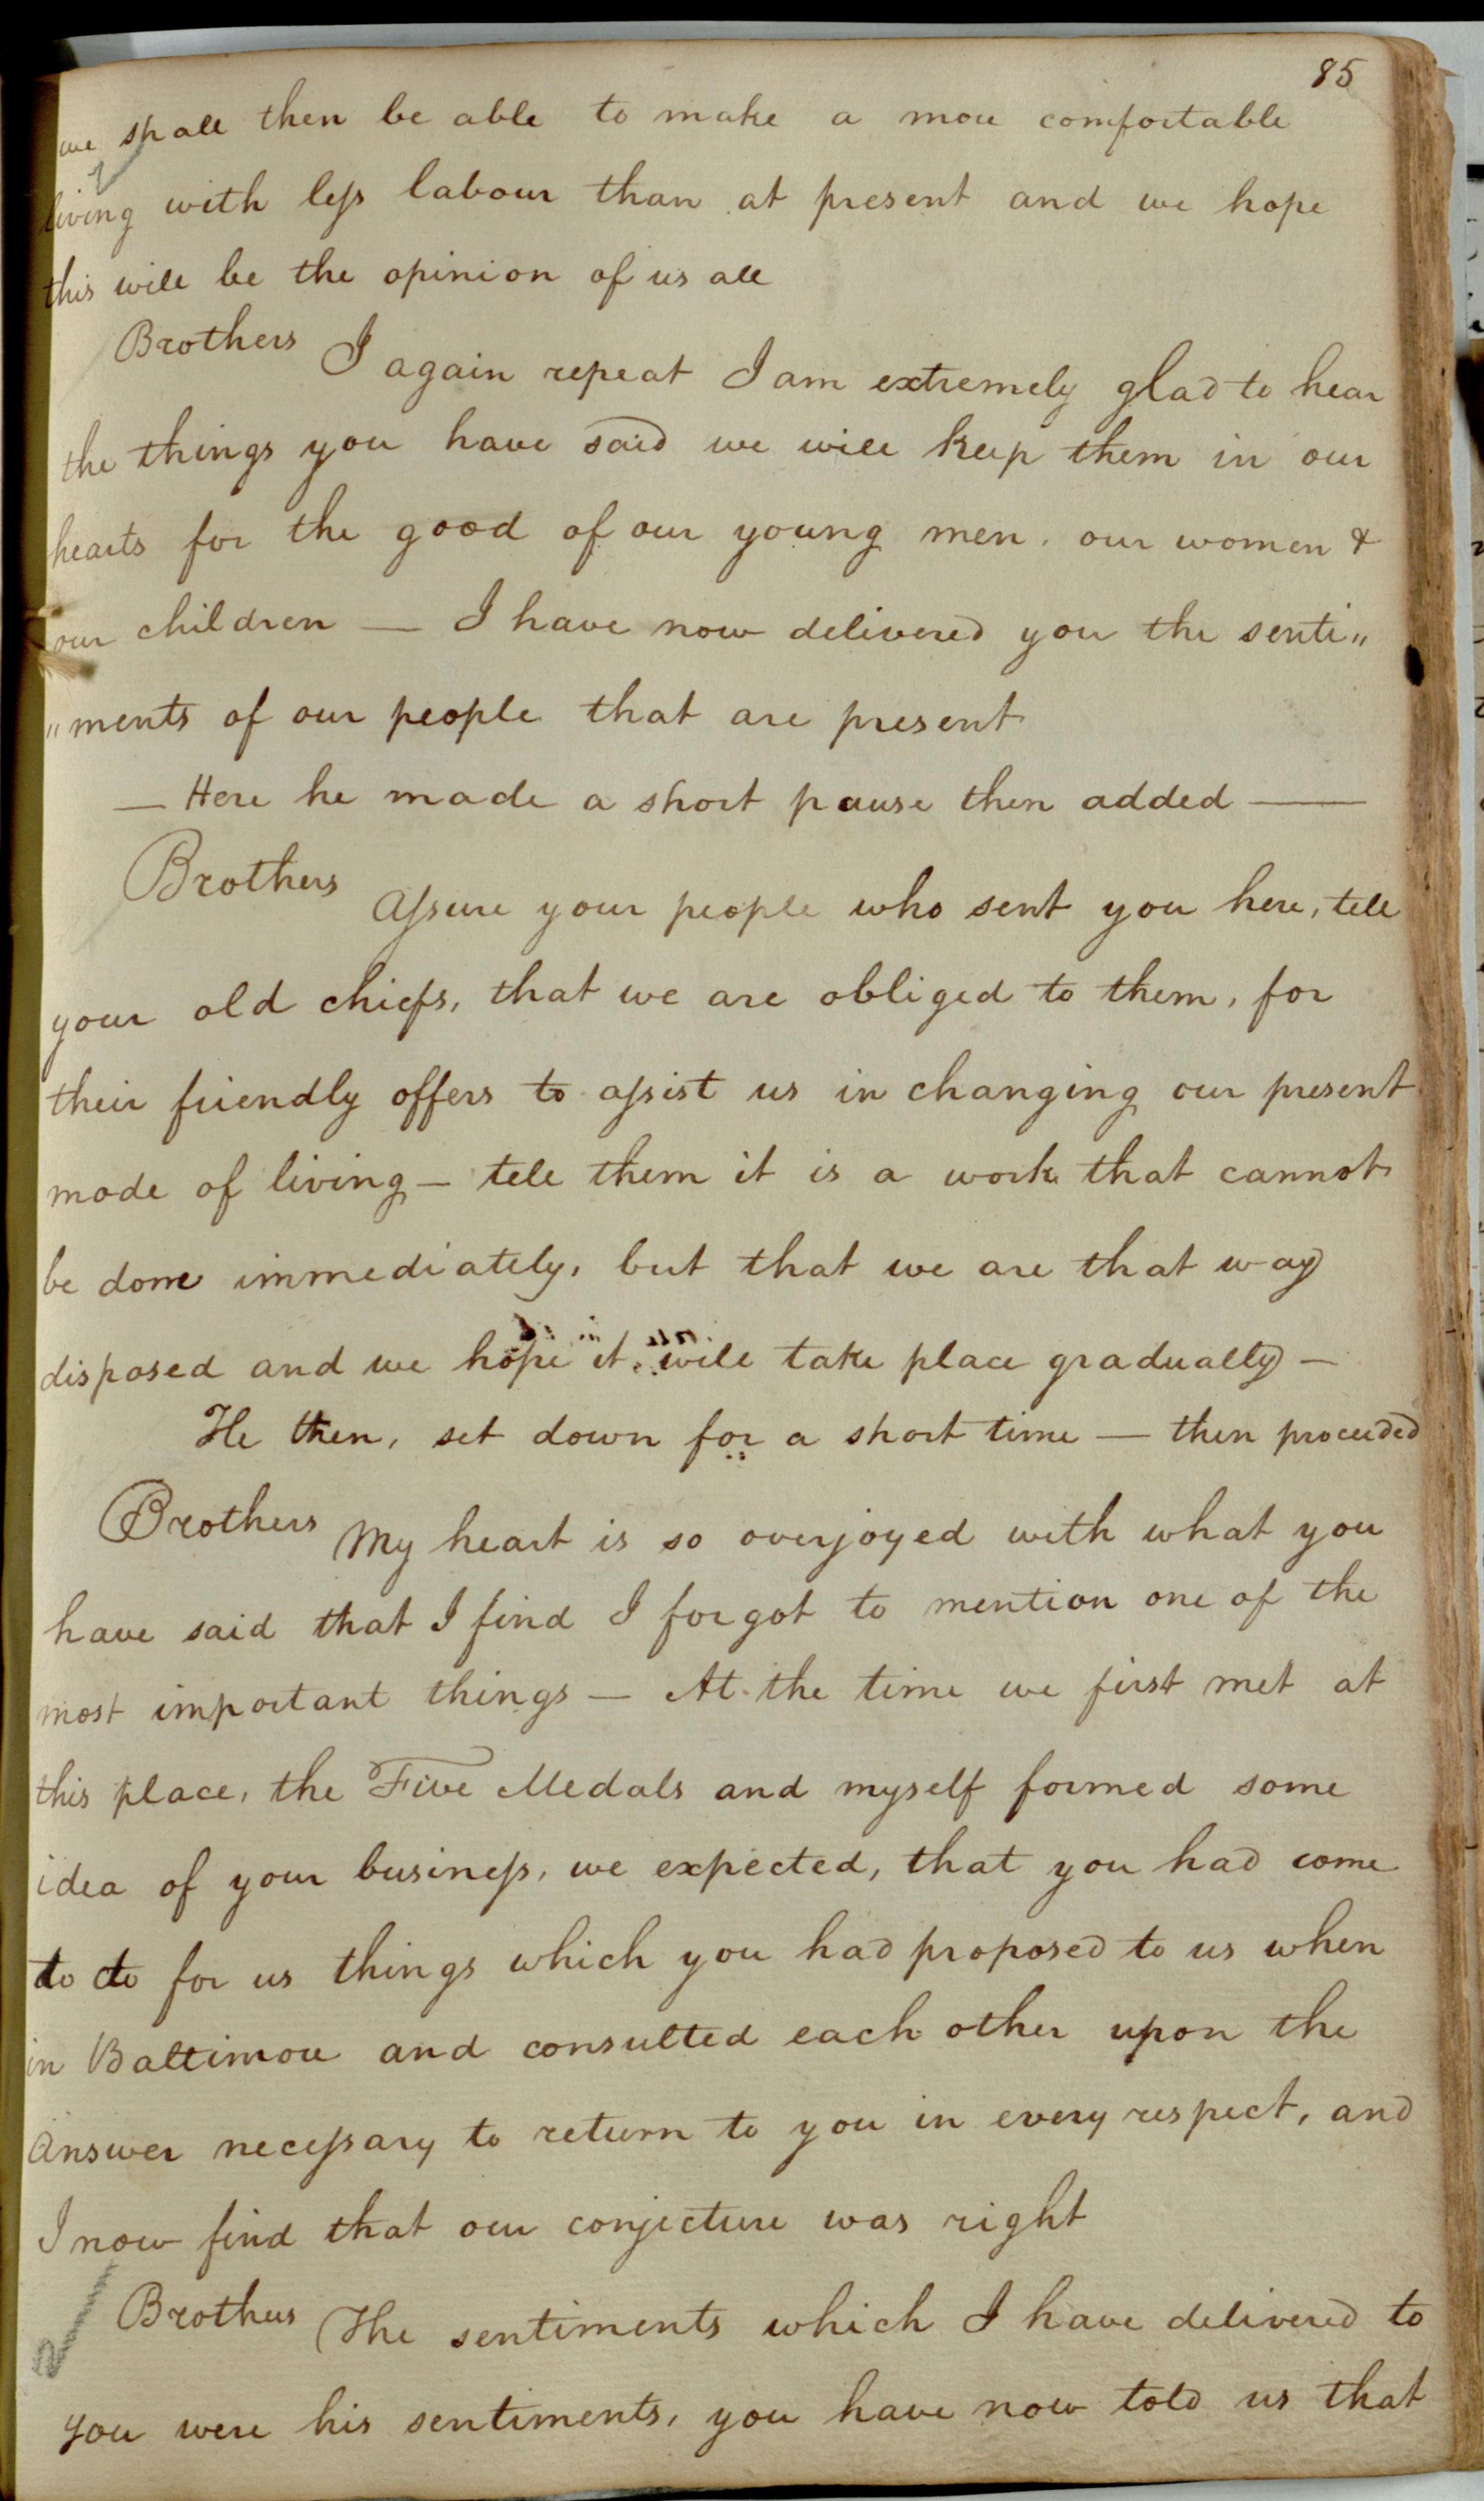 85
we shall then be able to make a more comfortable
living with less labour than at present and we hope
this will be the opinion of us all
Brothers I again repeat I am extremely glad to hear
the things you have said we will keep them in our
hearts for the good of our young men, our women &
our children — I have now delivered you the senti"
"ments of our people that are present
— Here he made a short pause then added —
Brothers Assure your people who sent you here, tell
your old chiefs, that we are obliged to them, for
their friendly offers to assist us in changing our present
mode of living — tell them it is a work that cannot
be done immediately, but that we are that way
disposed and we hope it will take place gradually —
He then, set down for a short time — then proceeded
Brothers My heart is so overjoyed with what you
have said that I find I forgot to mention one of the
most important things — At the time we first met at
this place, the Five Medals and myself formed some
idea of your business, we expected, that you had come
to do for us things which you had proposed to us when
in Baltimore and consulted each other upon the
Answer necessary to return to you in every respect, and
I now find that our conjecture was right
Brothers The sentiments which I have delivered to
you were his sentiments, you have now told us that